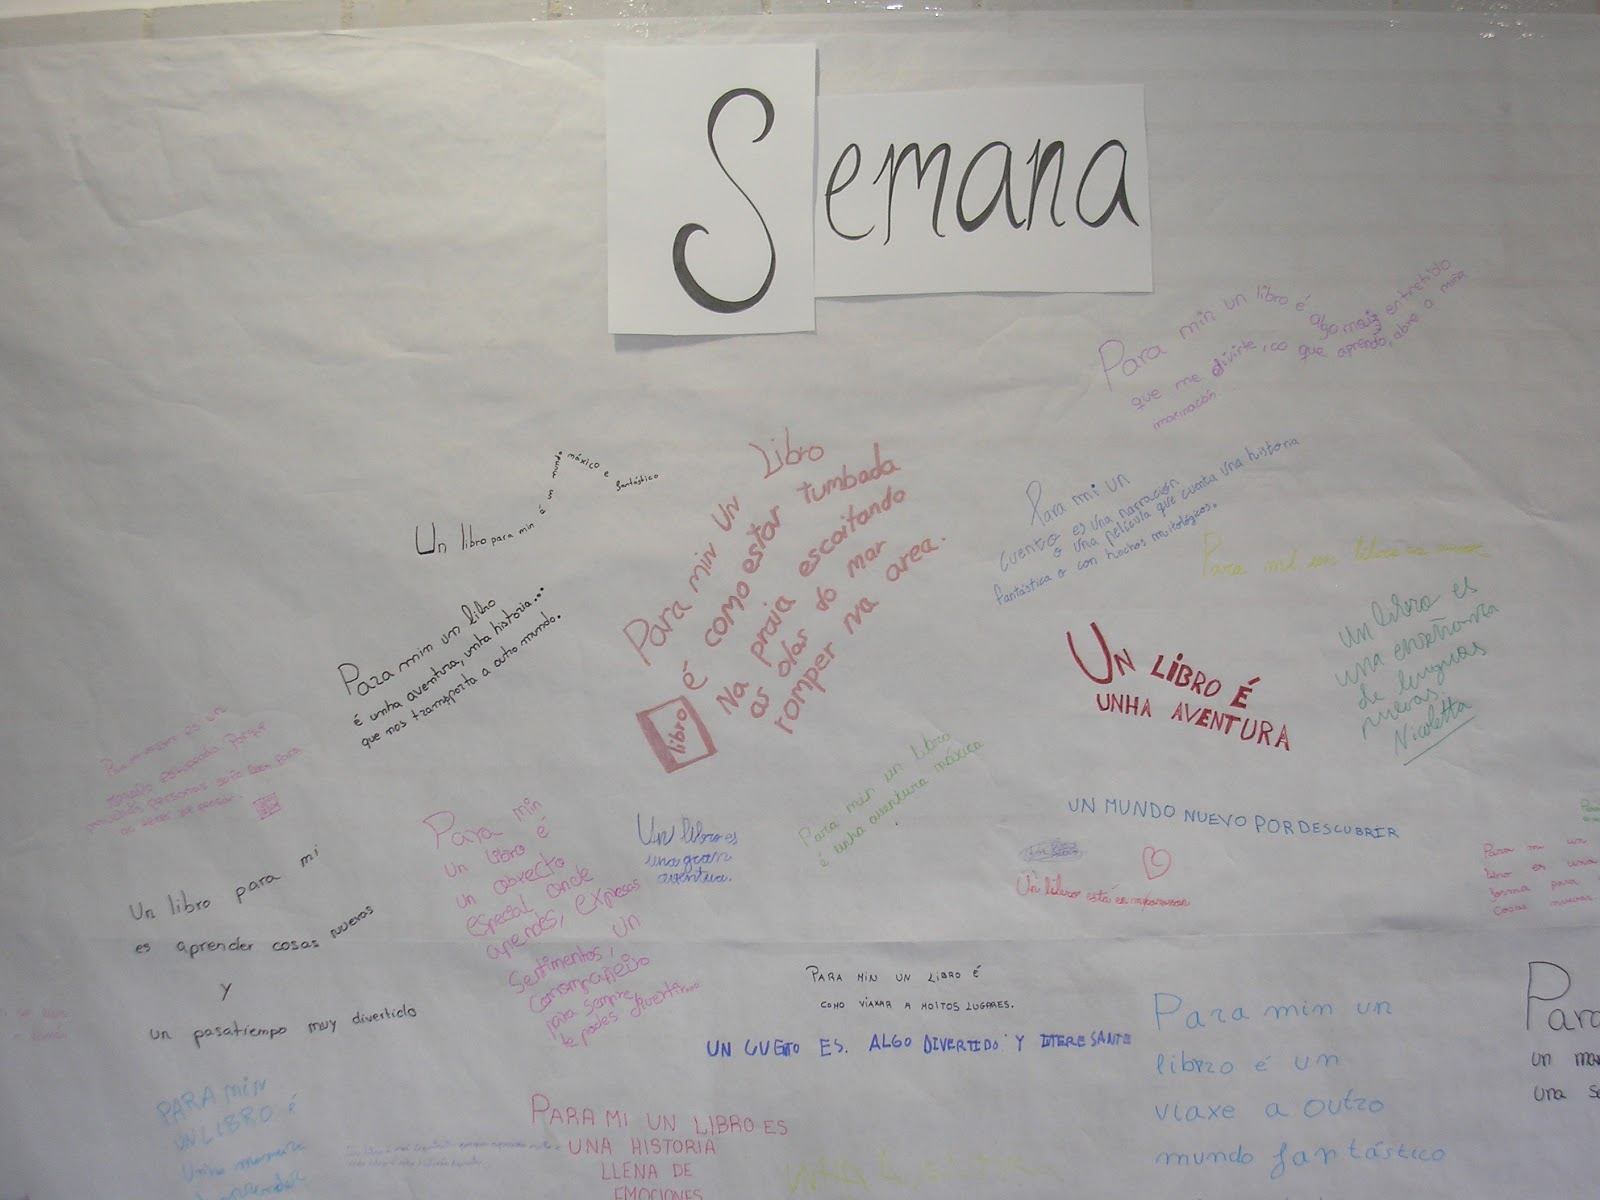 Semana
Para min un libro é algo mais entretido
que me divirte, co que aprendo, abre a miña
imaxinación...
Un libro para min é un mundo máxico e fantástico
Para min un libro
é unha aventura, unha historia...
que nos transporta a outro mundo.
Para min un libro
é como estar tumbada
na praia escoitando
as olas do mar
romper na area.
libro
Para mi un
cuento es una narración
o una película que cuenta una historia
fantástica o con hechos mitológicos.
Para mi un libro es
Un libro é
unha aventura
un libro es
una enseñanza
de lenguas
nuevas
Nicoletta
Para min un libro
é unha aventura máxica
UN MUNDO NUEVO POR DESCUBRIR
Un libro está
Un libro es
una gran
aventura.
Para min
un libro é
un obxecto
especial onde
aprendes, expresas
sentimentos, un
compañeiro
para sempre
te podes divertir...
Un libro para mi
es aprender cosas nuevas
y
un pasatiempo muy divertido
Para mi un
libro es una
forma para
cosas nuevas.
PARA MIN UN LIBRO É
COMO VIAXAR A MOITOS LUGARES.
UN CUETO ES. ALGO DIVERTIDO Y ITERESANTE
Para min un
libro é un
viaxe a outro
mundo fantástico
Para
una
PARA MIN
UN LIBRO é
Unha maneira
PARA MI UN LIBRO ES
UNA HISTORIA
LLENA DE
EMOCIONES